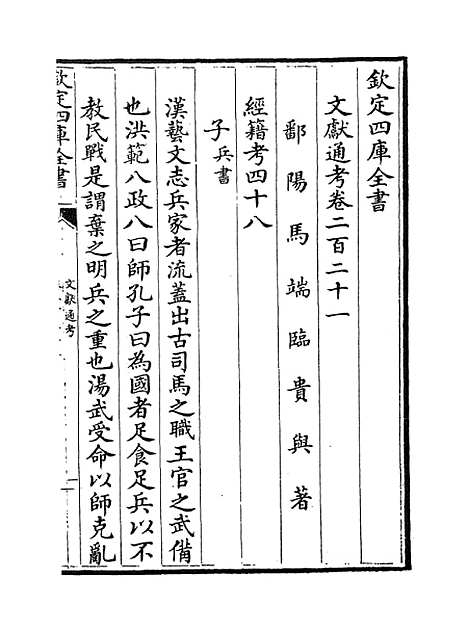 欽定四庫全書
文獻通考卷二百二十一
鄱陽馬端臨貴與著
經籍考四十八
子兵書
漢藝文志兵家者流蓋出古司馬之職王官之武備
也洪範八政八曰師孔子曰為國者足食足兵以不
教民戰是謂棄之明兵之重也湯武受命以師克亂
欽定四庫全書
文獻通考